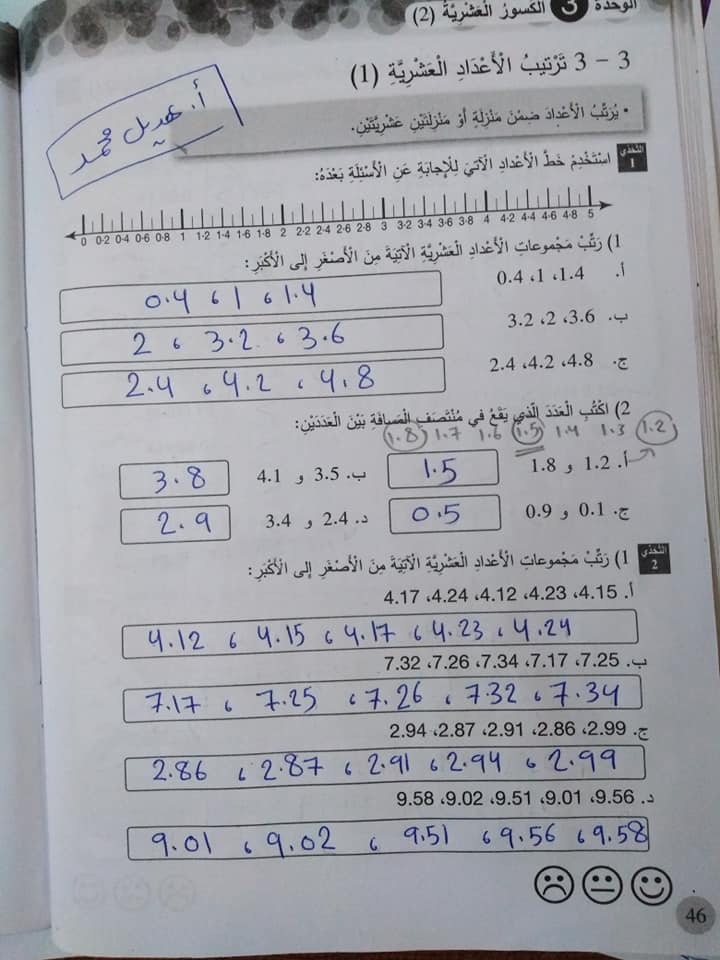 الوحدة 3 الكسور العَشْرِيَّة (2)
3 – 3 تَرْتيبُ الْأَعْدَادِ الْعَشْرِيَّةِ (1)
أ. هديل محمد
• يُرَتِّبُ الْأَعْدَادَ ضِمْنَ مَنْزِلَةٍ أَوْ مَنْزِلَتَيْنِ عَشْرِيَّتَيْنِ.
التحدي 1 اسْتَخْدِمْ خَطَّ الْأَعْدَادِ الْآتِيَ لِلْإِجابَةِ عَنِ الْأَسْئِلَةِ بَعْدَهُ:
0 0·2 0·4 0·6 0·8 1 1·2 1·4 1·6 1·8 2 2·2 2·4 2·6 2·8 3 3·2 3·4 3·6 3·8 4 4·2 4·4 4·6 4·8 5
1) رَتِّبْ مَجْموعاتِ الْأَعْدادِ الْعَشْرِيَّةِ الْآتِيَةَ مِنَ الْأَصْغَرِ إلى الْأَكْبَرِ:
أ. 1.4 ،1 ،0.4
0.4 ، 1 ، 1.4
ب. 3.6 ،2 ،3.2
2 ، 3.2 ، 3.6
ج. 4.8 ،4.2 ،2.4
2.4 ، 4.2 ، 4.8
2) اكْتُبِ الْعَدَدَ الَّذي يَقَعُ في مُنْتَصَفِ الْمَسافَةِ بَيْنَ الْعَدَدَيْنِ:
1.8 1.7 1.6 1.5 1.4 1.3 1.2
أ. 1.2 و 1.8 1.5 ب. 3.5 و 4.1 3.8
ج. 0.1 و 0.9 0.5 د. 2.4 و 3.4 2.9
التحدي 2 1) رَتِّبْ مَجْموعاتِ الْأَعْدادِ الْعَشْرِيَّةِ الْآتِيَةَ مِنَ الْأَصْغَرِ إلى الْأَكْبَرِ:
أ. 4.15 ،4.23 ،4.12 ،4.24 ،4.17
4.12 ، 4.15 ، 4.17 ، 4.23 ، 4.24
ب. 7.25 ،7.17 ،7.34 ،7.26 ،7.32
7.17 ، 7.25 ، 7.26 ، 7.32 ، 7.34
ج. 2.99 ،2.86 ،2.91 ،2.87 ،2.94
2.86 ، 2.87 ، 2.91 ، 2.94 ، 2.99
د. 9.56 ،9.01 ،9.51 ،9.02 ،9.58
9.01 ، 9.02 ، 9.51 ، 9.56 ، 9.58
46